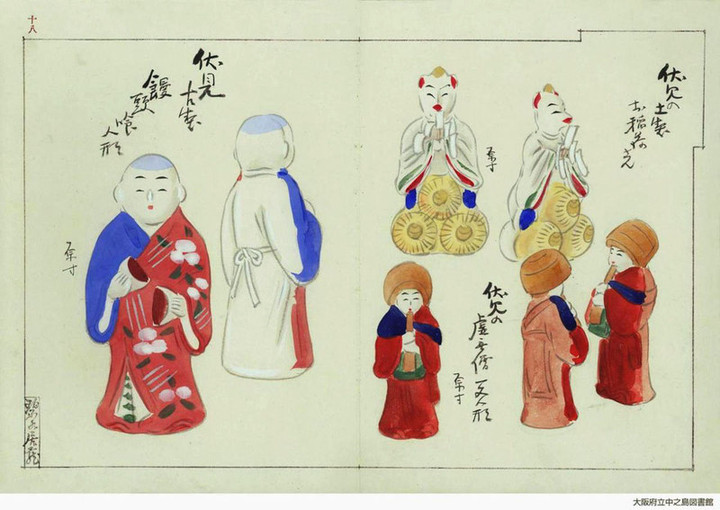 十八
伏見の
土製
お稲荷さん
原寸
伏見の
虚無僧一文人形
原寸
伏見
古製
饅頭喰
人形
原寸
大阪府立中之島図書館